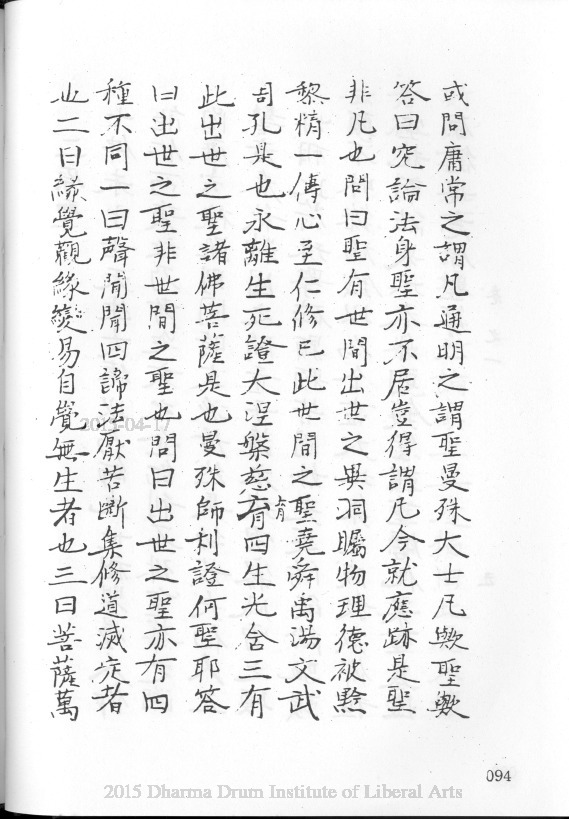 或問庸常之謂凡通明之謂聖曼殊大士凡歟聖歟
答曰究論法身聖亦不居豈得謂凡今就應跡是聖
非凡也問曰聖有世間出世之異洞矚物理德被黔
黎精一傳心至仁修己此世間之聖堯舜禹湯文武
周孔是也永離生死證大涅槃慈育育四生光含三有
此出世之聖諸佛菩薩是也曼殊師利證何聖耶答
曰出世之聖非世間之聖也問曰出世之聖亦有四
種不同一曰聲聞聞四諦法厭苦斷集修道滅定者
也二曰緣覺觀緣變易自覺無生者也三曰菩薩萬
2015-04-17
094
2015 Dharma Drum Institute of Liberal Arts